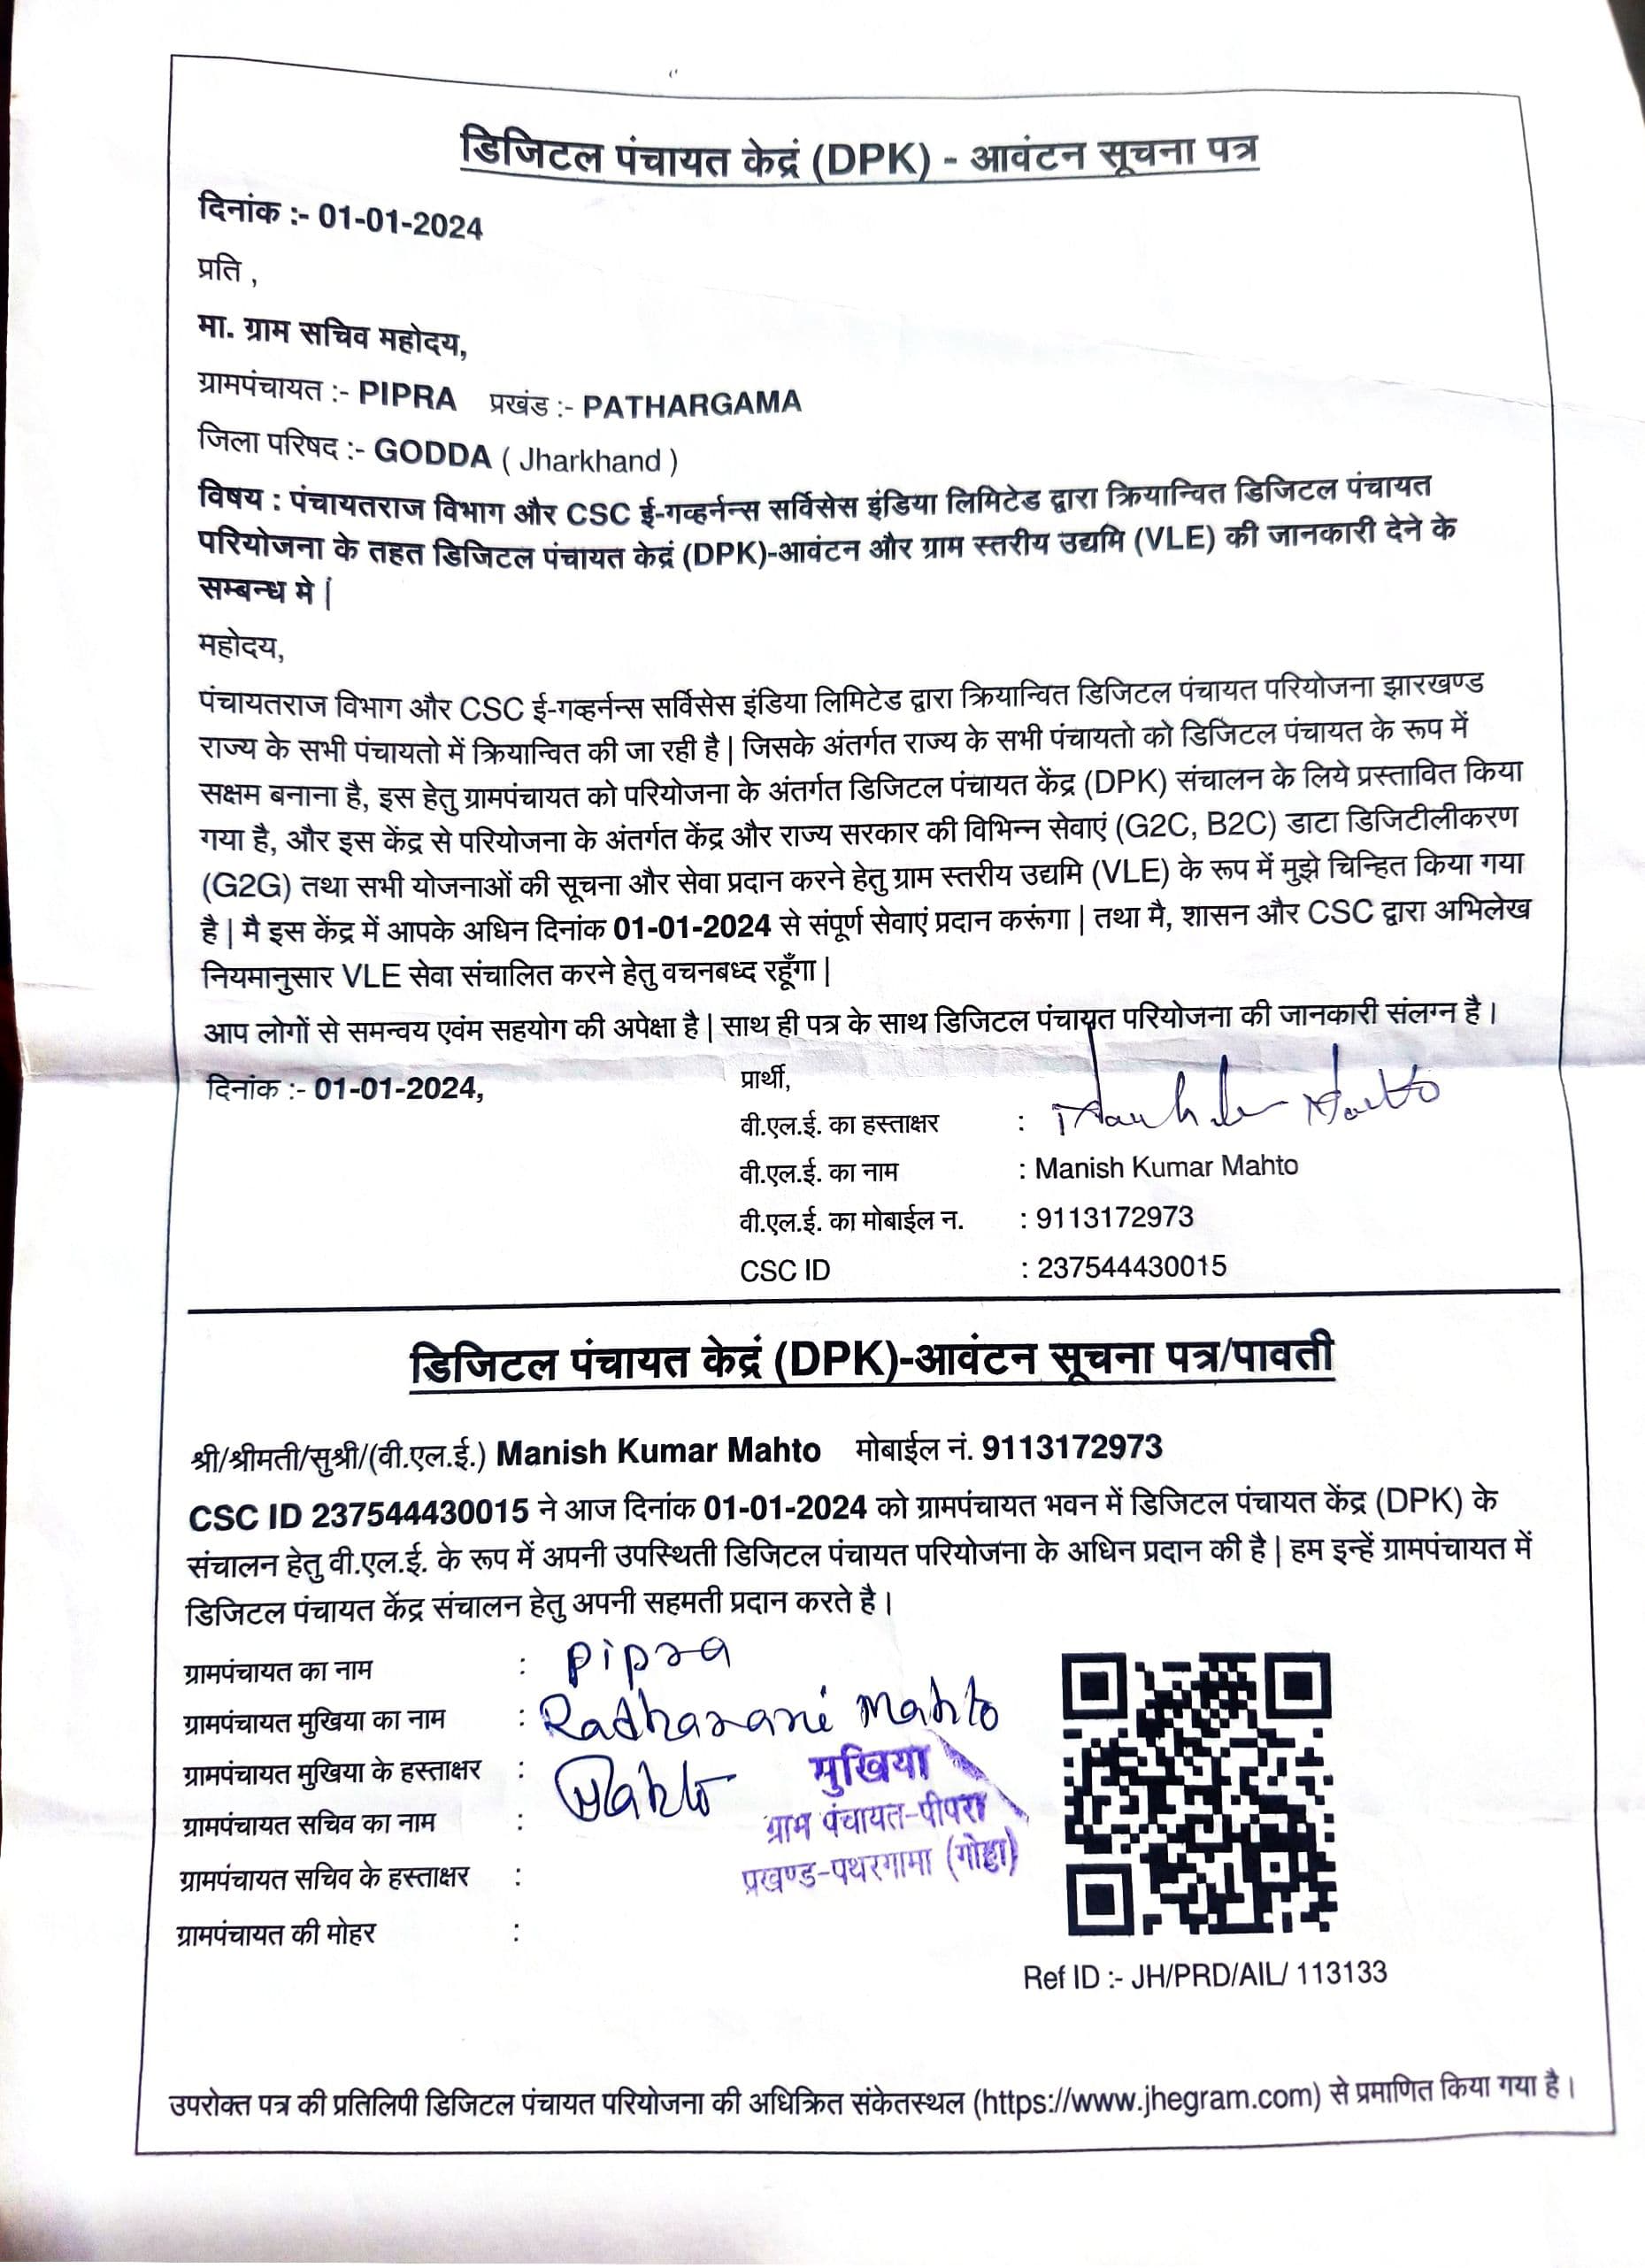 डिजिटल पंचायत केद्रं (DPK) - आवंटन सूचना पत्र
दिनांक :- 01-01-2024
प्रति ,
मा. ग्राम सचिव महोदय,
ग्रामपंचायत :- PIPRA प्रखंड :- PATHARGAMA
जिला परिषद :- GODDA ( Jharkhand )
विषय : पंचायतराज विभाग और CSC ई-गव्हर्नन्स सर्विसेस इंडिया लिमिटेड द्वारा क्रियान्वित डिजिटल पंचायत
परियोजना के तहत डिजिटल पंचायत केद्रं (DPK)-आवंटन और ग्राम स्तरीय उद्यमि (VLE) की जानकारी देने के
सम्बन्ध मे |
महोदय,
पंचायतराज विभाग और CSC ई-गव्हर्नन्स सर्विसेस इंडिया लिमिटेड द्वारा क्रियान्वित डिजिटल पंचायत परियोजना झारखण्ड
राज्य के सभी पंचायतो में क्रियान्वित की जा रही है | जिसके अंतर्गत राज्य के सभी पंचायतो को डिजिटल पंचायत के रूप में
सक्षम बनाना है, इस हेतु ग्रामपंचायत को परियोजना के अंतर्गत डिजिटल पंचायत केंद्र (DPK) संचालन के लिये प्रस्तावित किया
गया है, और इस केंद्र से परियोजना के अंतर्गत केंद्र और राज्य सरकार की विभिन्न सेवाएं (G2C, B2C) डाटा डिजिटीलीकरण
(G2G) तथा सभी योजनाओं की सूचना और सेवा प्रदान करने हेतु ग्राम स्तरीय उद्यमि (VLE) के रूप में मुझे चिन्हित किया गया
है | मै इस केंद्र में आपके अधिन दिनांक 01-01-2024 से संपूर्ण सेवाएं प्रदान करूंगा | तथा मै, शासन और CSC द्वारा अभिलेख
नियमानुसार VLE सेवा संचालित करने हेतु वचनबध्द रहूँगा |
आप लोगों से समन्वय एवंम सहयोग की अपेक्षा है | साथ ही पत्र के साथ डिजिटल पंचायत परियोजना की जानकारी संलग्न है।
दिनांक :- 01-01-2024,
प्रार्थी,
वी.एल.ई. का हस्ताक्षर :
वी.एल.ई. का नाम : Manish Kumar Mahto
वी.एल.ई. का मोबाईल न. : 9113172973
CSC ID : 237544430015
डिजिटल पंचायत केद्रं (DPK)-आवंटन सूचना पत्र/पावती
श्री/श्रीमती/सुश्री/(वी.एल.ई.) Manish Kumar Mahto मोबाईल नं. 9113172973
CSC ID 237544430015 ने आज दिनांक 01-01-2024 को ग्रामपंचायत भवन में डिजिटल पंचायत केंद्र (DPK) के
संचालन हेतु वी.एल.ई. के रूप में अपनी उपस्थिती डिजिटल पंचायत परियोजना के अधिन प्रदान की है | हम इन्हें ग्रामपंचायत में
डिजिटल पंचायत केंद्र संचालन हेतु अपनी सहमती प्रदान करते है।
ग्रामपंचायत का नाम : Pipra
ग्रामपंचायत मुखिया का नाम : Radharani Mahto
ग्रामपंचायत मुखिया के हस्ताक्षर : Mahto
मुखिया
ग्राम पंचायत-पीपरा
प्रखण्ड-पथरगामा (गोड्डा)
ग्रामपंचायत सचिव का नाम :
ग्रामपंचायत सचिव के हस्ताक्षर :
ग्रामपंचायत की मोहर :
Ref ID :- JH/PRD/AIL/ 113133
उपरोक्त पत्र की प्रतिलिपी डिजिटल पंचायत परियोजना की अधिक्रित संकेतस्थल (https://www.jhegram.com) से प्रमाणित किया गया है।